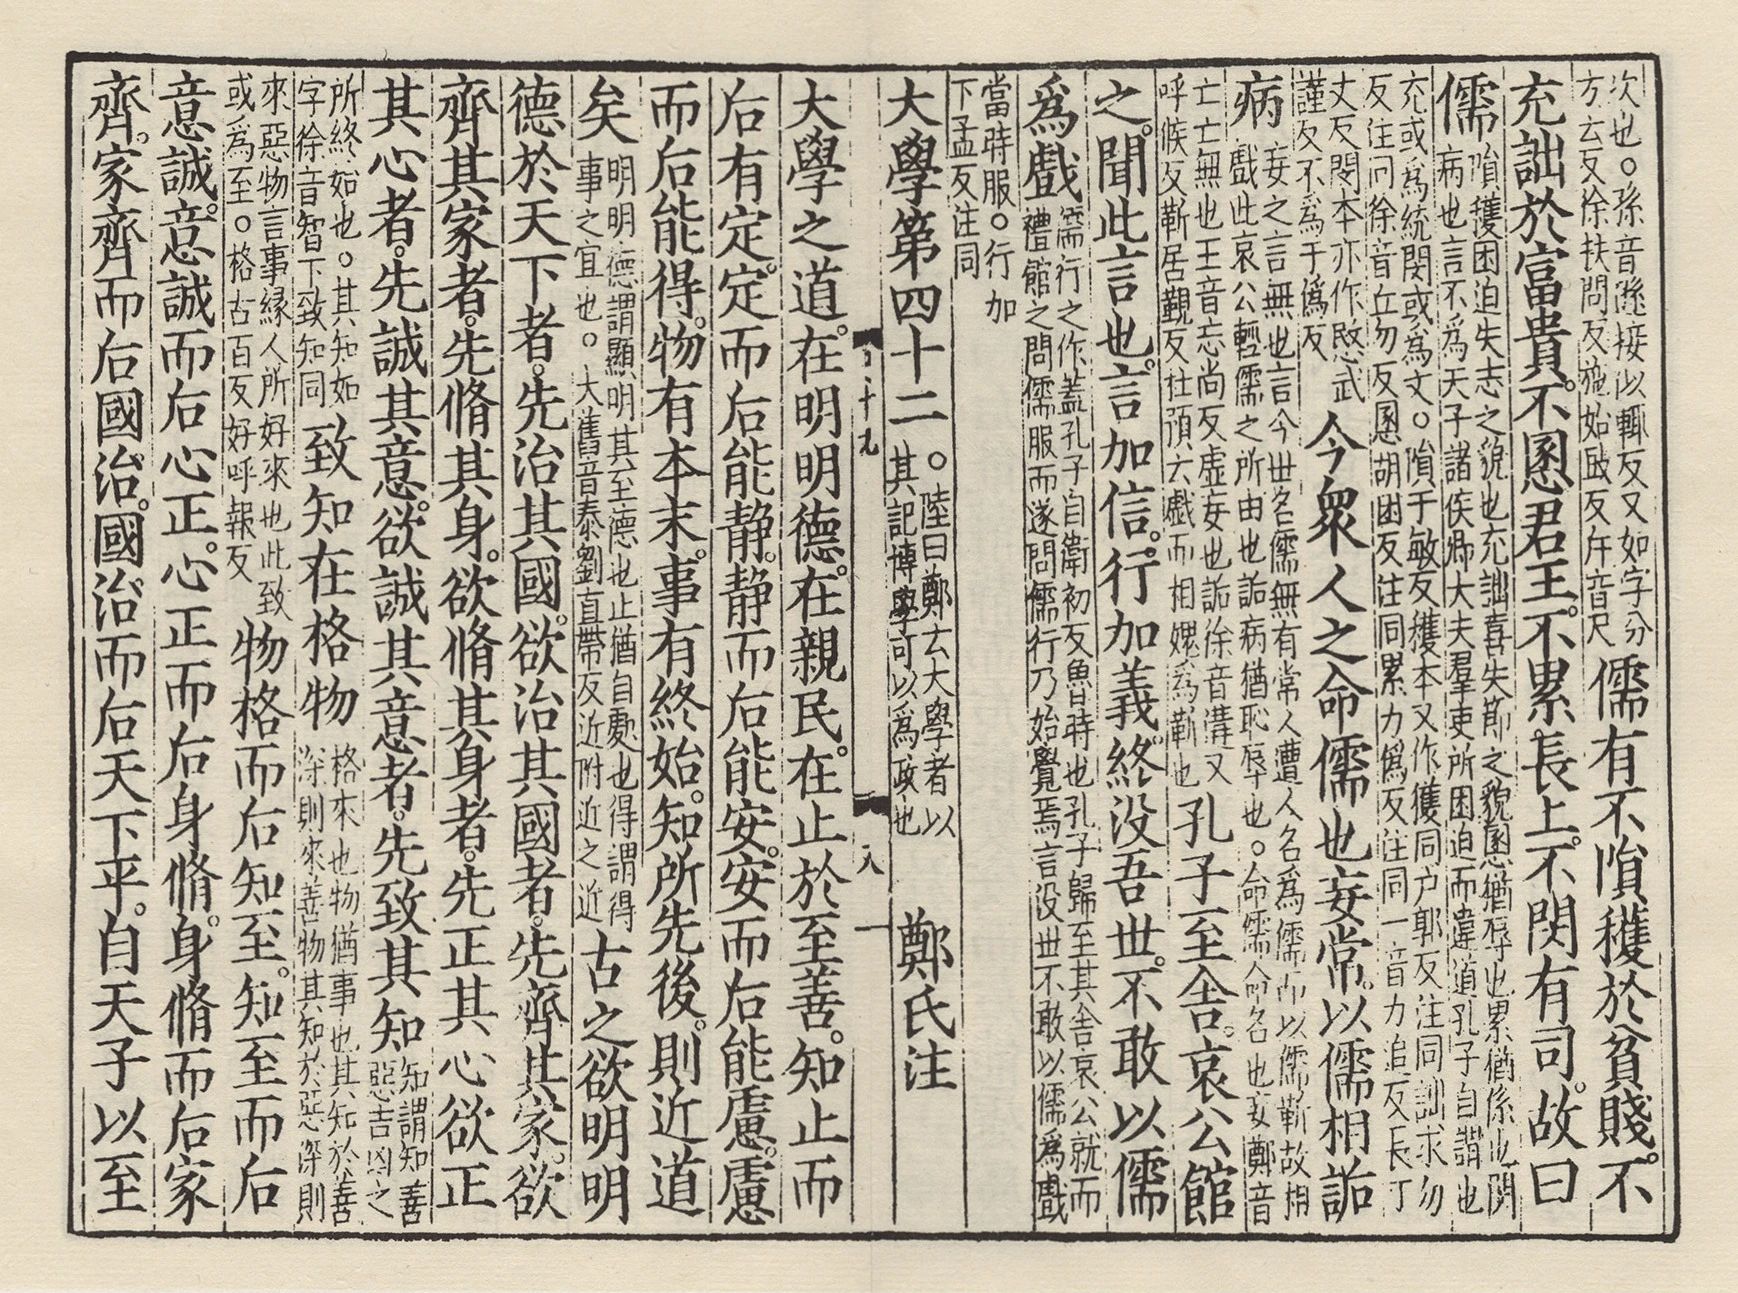 次也。孫音遜接以輒反又如字分方云反徐扶問反施如豉反斥音尺儒有不隕穫於貧賤。不
充詘於富貴。不慁君王。不累長上。不閔有司。故曰
儒隕穫困迫失志之貌也充詘喜失節之貌慁猶辱也累猶係也閔病也言不爲天子諸侯卿大夫羣吏所困迫而違道孔子自謂也
充或爲統閔或爲文。隕于敏反穫本又作獲同户郭反注同詘求勿反注同徐音丘勿反慁胡困反注同累力僞反注同一音力追反長丁
丈反閔本亦作愍武謹反不爲于僞反今衆人之命儒也妄常。以儒相詬
病妄之言無也言今世名儒無有常人遭人名爲儒而以儒靳故相戲此哀公輕儒之所由也詬病猶恥辱也。命儒命名也妄鄭音
亡亡無也王音忘尚反虛妄也詬徐音溝又呼候反靳居覲反杜預云戲而相媿爲靳也孔子至舍。哀公館
之。聞此言也。言加信。行加義。終没吾世。不敢以儒
爲戲儒行之作蓋孔子自衛初反魯時也孔子歸至其舍哀公就而禮館之問儒服而遂問儒行乃始覺焉言没世不敢以儒爲戲
當時服。行加下孟反注同
大學第四十二。陸曰鄭云大學者以其記博學可以爲政也 鄭氏注
十九
八 一
大學之道。在明明德。在親民。在止於至善。知止而
后有定。定而后能静。静而后能安。安而后能慮。慮
而后能得。物有本末。事有終始。知所先後。則近道
矣明明德謂顯明其至德也止猶自處也得謂得事之宜也。大舊音泰劉直帶反近附近之近古之欲明明
德於天下者。先治其國。欲治其國者。先齊其家。欲
齊其家者。先脩其身。欲脩其身者。先正其心欲正
其心者。先誠其意。欲誠其意者。先致其知知謂知善惡吉凶之
所終始也。其知如字徐音智下致知同致知在格物格來也物猶事也其知於善深則來善物其知於惡深則
來惡物言事緣人所好來也此致或爲至。格古百反好呼報反物格而后知至。知至而后
意誠。意誠而后心正。心正而后身脩。身脩而后家
齊。家齊而后國治。國治而后天下平。自天子以至